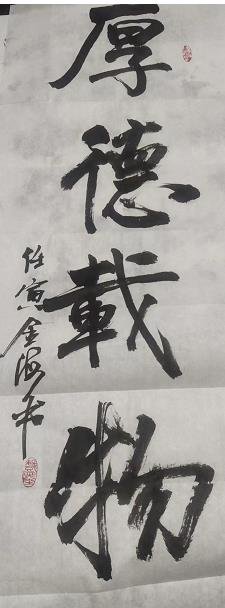 厚德載物
壬寅金海